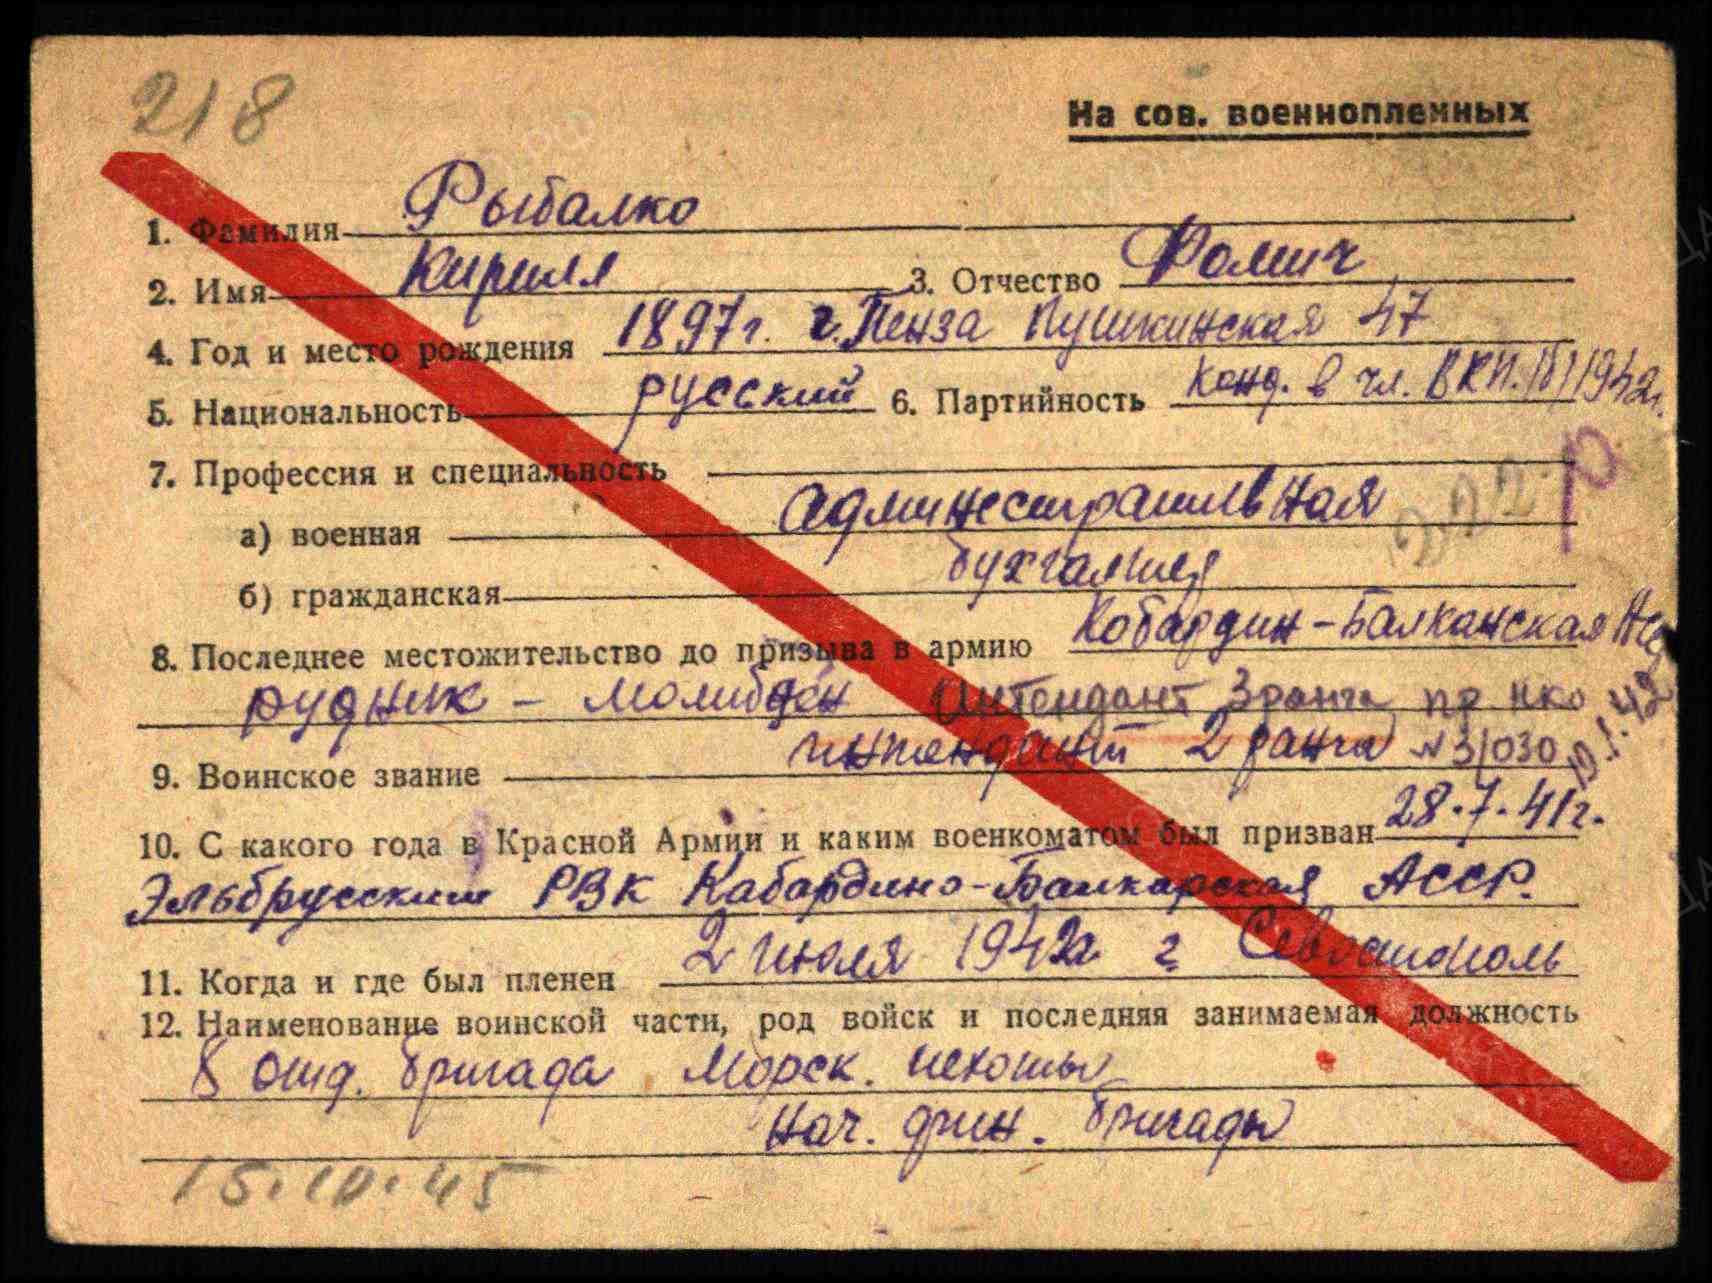 218
На сов. военнопленных
1. Фамилия Рыбалко
2. Имя Кирилл 3. Отчество Фомич
4. Год и место рождения 1897г. г. Пенза Пушкинская 47
5. Национальность русский 6. Партийность Конд. в чл. ВКП(б) 1942г.
7. Профессия и специальность
а) военная административная
222 Р
б) гражданская бухгалтер
8. Последнее местожительство до призыва в армию Кобардин-Балканская
рудник - молибден Интендант 3 ранга пр НКО
9. Воинское звание интендант 2 ранга №31030 10.1.42
10. С какого года в Красной Армии и каким военкоматом был призван 28.7.41г.
Эльбрусским РВК Кабардино-Балкарская АССР.
11. Когда и где был пленен 2 июля 1942г г. Севостополь
12. Наименование воинской части, род войск и последняя занимаемая должность
8 отд. бригада Морск. пехоты
нач. фин. бригады
15.10.45